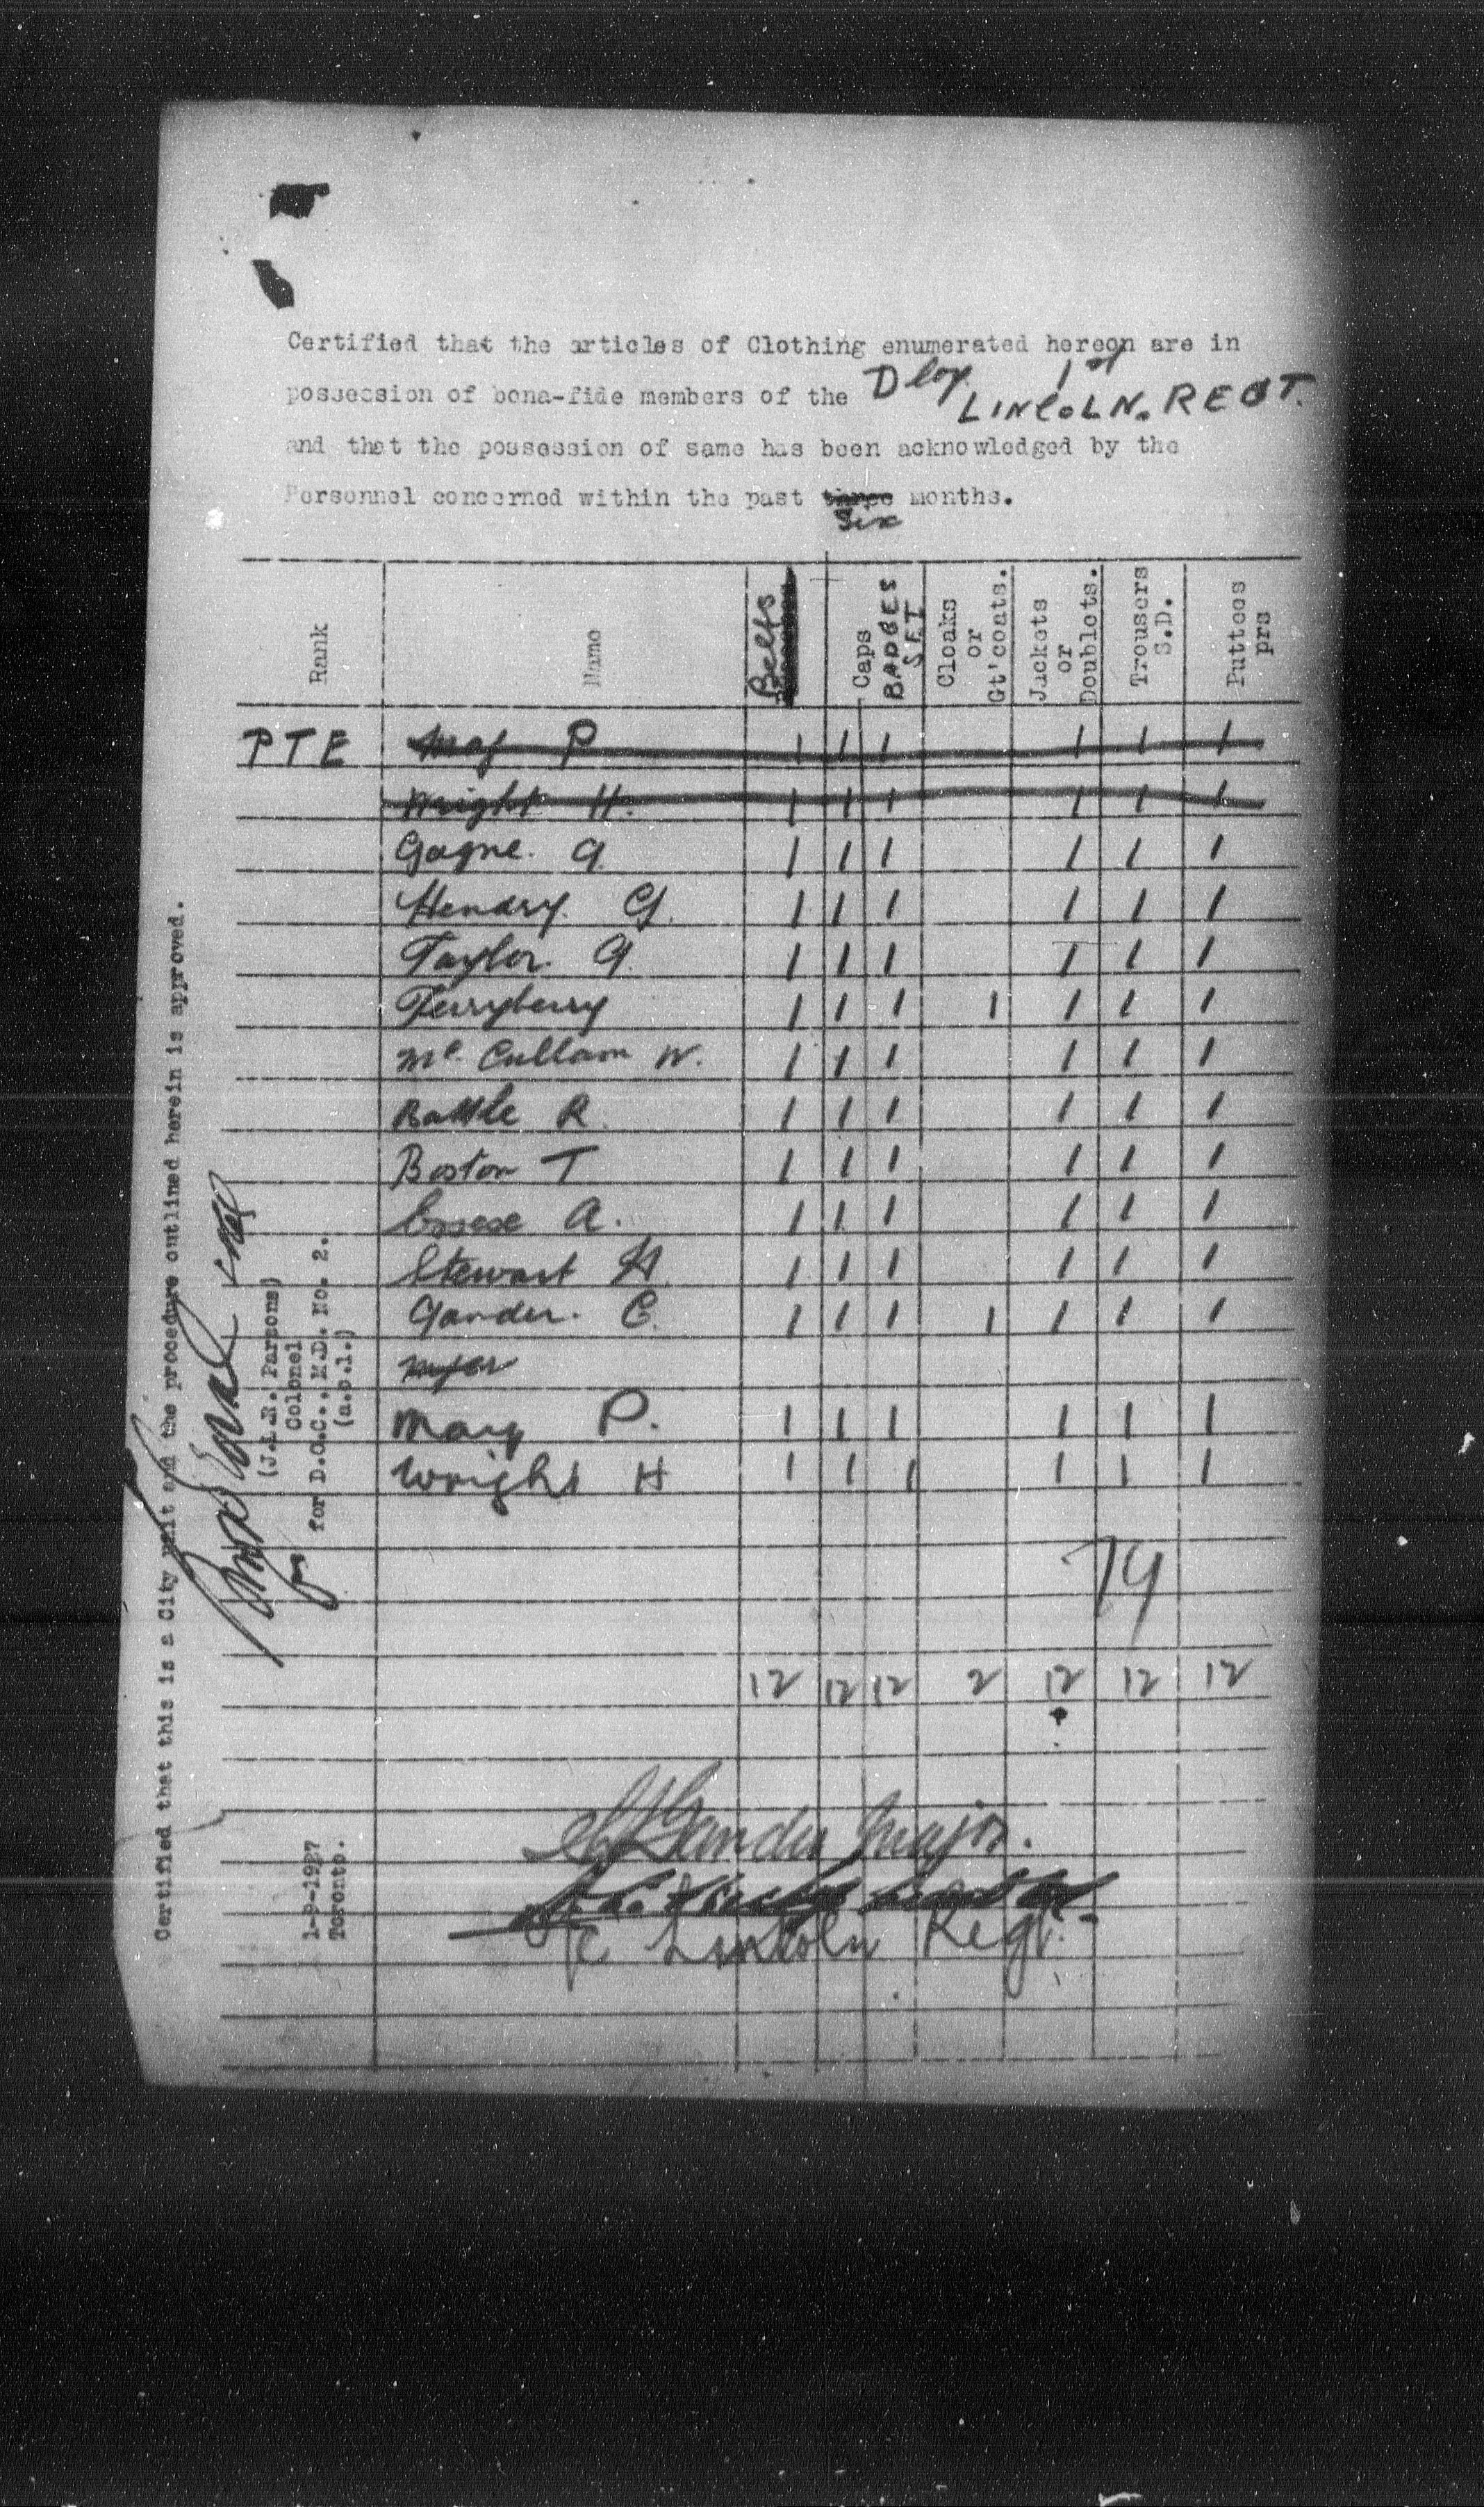 Certified that the articles of Clothing enumerated hereon are in
possession of bona-fide members of the D Coy. 1st LINCOLN. REGT.
and that the possession of same has been acknowledged by the
Personnel concerned within the past three months.
Six
Rank Name Belts Caps BADGES SET Cloaks or Gt'coats. Jackets or Doublets. Trousers S.D. Puttees prs
PTE May P 1 1 1 1 1 1
Wright H. 1 1 1 1 1 1
Gagne. G. 1 1 1 1 1 1
Hendry. G. 1 1 1 1 1 1
Taylor. G. 1 1 1 1 1 1
Terryberry 1 1 1 1 1 1 1
Mc. Cullam W. 1 1 1 1 1 1
Battle R. 1 1 1 1 1 1
Boston T 1 1 1 1 1 1
A. 1 1 1 1 1 1
Stewart H. 1 1 1 1 1 1
Gander. C. 1 1 1 1 1 1 1
May P. 1 1 1 1 1 1
Wright H 1 1 1 1 1 1
74
12 12 12 2 12 12 12
Gander Major.
Lincoln Regt.
Certified that this is a City unit and the procedure outlined herein is approved.
(J.L.R. Parsons)
Colonel
for D.O.C., M.D. No. 2.
(a.o.l.)
1-9-1927
Toronto.